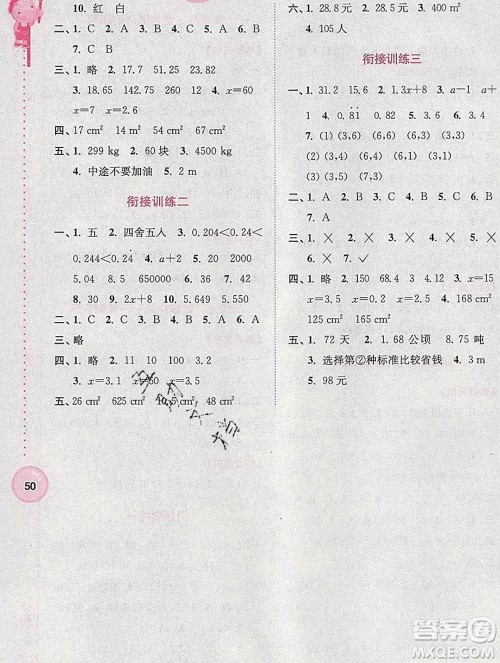 10. 红　白
三、1. C　2. C　3. B　4. A　5. C
三、1. 略　2. 17.7　51.25　23.82
3. 18.65　142.75　260　12　4. x＝60
x＝2.5　x＝3.6
四、17 cm²　17 cm²　14 cm²
五、1. 299 kg　2. 60 块　3. 4500 kg
4. 中途不要加油　5. 2 m
衔接训练二
一、1. 五　2. 四舍五人　3. 0.204＜0.24
0.244＜0.24　4. a＋2　5. 20　50
5.04　8.5　650000　6. 36　7. 42
8. 30　9. 2x＋8　10. 5.549　5.650
二、1. C　2. C　3. B　4. A　5. A
三、略
四、1. 略　2. 11　10　100　3.2
3. x＝1.5　x＝50　x＝3.5
五、26 cm²　625 cm²　10.5 cm²　48 cm²
50
六、1. 28.8 元　2. 28.5 元　3. 24 元
4. 105 人
衔接训练三
一、1. 31.2　15.6　2. 1.3x＋8　3. a－1　a＋1
4. 0.81　5. 87.6　6. 42
7. (1) (3,6)　(2,4)　(5,4)　(6,6)
(2) (3,4)　(6,1)　(3,1)　(3) (3,4)
二、1. B　2. A　3. B　4. C　5. C　6. B
7. A
三、1. ×　2. ×　3. ×　4. ×　5. ×
6. ×　7. ✓
四、1. 略　2. 150　68.4　3.12　3. x＝4
x＝10　x＝1.6　4. 168 cm²
125 cm²　108 cm²
五、1. 72 天　2. 1.68 公顷　8.75 吨
3. 选择第②种标准比较省钱　4. 3 m
5. 98 元
答案圈
MXQE.COM